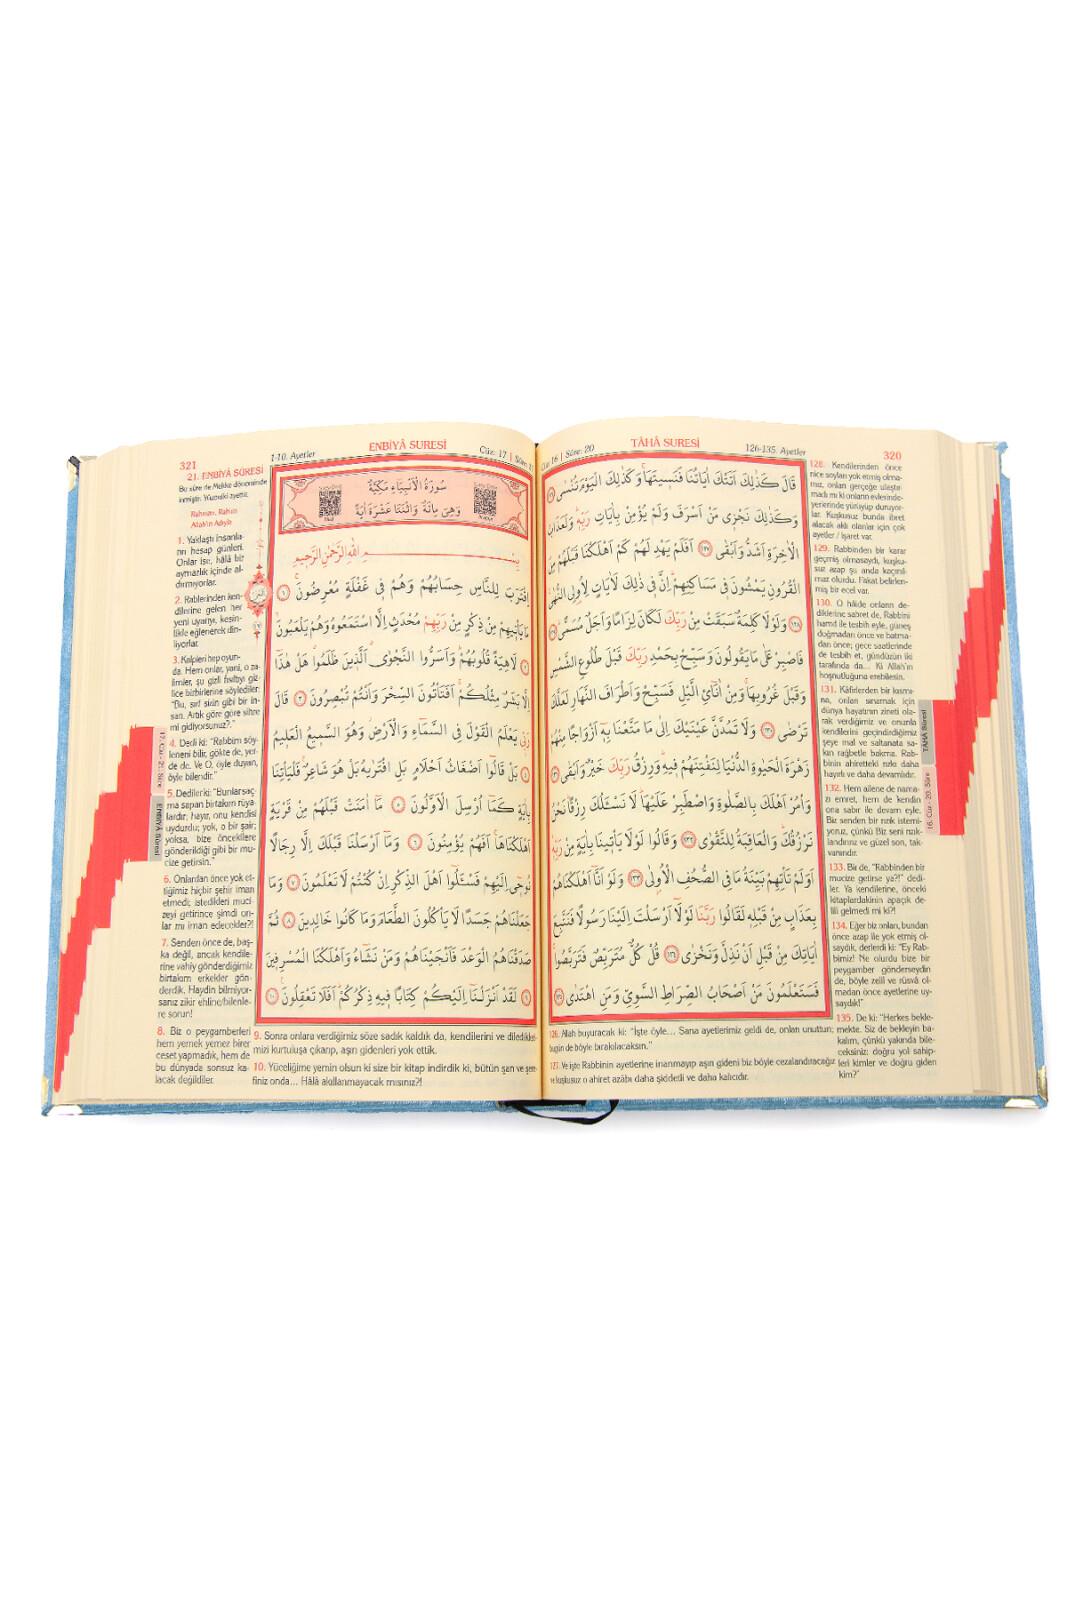 TÂHÂ SURESİ
126-135. Ayetler
320
قَالَ كَذٰلِكَ اَتَتْكَ اٰيَاتُنَا فَنَسٖيتَهَاۚ وَكَذٰلِكَ الْيَوْمَ تُنْسٰى ﴿١٢٦﴾
وَكَذٰلِكَ نَجْزٖى مَنْ اَسْرَفَ وَلَمْ يُؤْمِنْ بِاٰيَاتِ رَبِّهٖۜ وَلَعَذَابُ
الْاٰخِرَةِ اَشَدُّ وَاَبْقٰى ﴿١٢٧﴾ اَفَلَمْ يَهْدِ لَهُمْ كَمْ اَهْلَكْنَا قَبْلَهُمْ مِنَ
الْقُرُونِ يَمْشُونَ فٖى مَسَاكِنِهِمْۜ اِنَّ فٖى ذٰلِكَ لَاٰيَاتٍ لِاُولِى النُّهٰى
﴿١٢٨﴾ وَلَوْلَا كَلِمَةٌ سَبَقَتْ مِنْ رَبِّكَ لَكَانَ لِزَامًا وَاَجَلٌ مُسَمًّىۜ ﴿١٢٩﴾
فَاصْبِرْ عَلٰى مَا يَقُولُونَ وَسَبِّحْ بِحَمْدِ رَبِّكَ قَبْلَ طُلُوعِ الشَّمْسِ
وَقَبْلَ غُرُوبِهَاۚ وَمِنْ اٰنَٓائِ الَّيْلِ فَسَبِّحْ وَاَطْرَافَ النَّهَارِ لَعَلَّكَ
تَرْضٰى ﴿١٣٠﴾ وَلَا تَمُدَّنَّ عَيْنَيْكَ اِلٰى مَا مَتَّعْنَا بِهٖٓ اَزْوَاجًا مِنْهُمْ
زَهْرَةَ الْحَيٰوةِ الدُّنْيَا لِنَفْتِنَهُمْ فٖيهِۜ وَرِزْقُ رَبِّكَ خَيْرٌ وَاَبْقٰى ﴿١٣١﴾
وَاْمُرْ اَهْلَكَ بِالصَّلٰوةِ وَاصْطَبِرْ عَلَيْهَاۜ لَا نَسْـَٔلُكَ رِزْقًاۜ نَحْنُ
نَرْزُقُكَۜ وَالْعَاقِبَةُ لِلتَّقْوٰى ﴿١٣٢﴾ وَقَالُوا لَوْلَا يَاْتٖينَا بِاٰيَةٍ مِنْ رَبِّهٖۜ
اَوَلَمْ تَاْتِهِمْ بَيِّنَةُ مَا فِى الصُّحُفِ الْاُولٰى ﴿١٣٣﴾ وَلَوْ اَنَّٓا اَهْلَكْنَاهُمْ
بِعَذَابٍ مِنْ قَبْلِهٖ لَقَالُوا رَبَّنَا لَوْلَٓا اَرْسَلْتَ اِلَيْنَا رَسُولًا فَنَتَّبِعَ
اٰيَاتِكَ مِنْ قَبْلِ اَنْ نَذِلَّ وَنَخْزٰى ﴿١٣٤﴾ قُلْ كُلٌّ مُتَرَبِّصٌ فَتَرَبَّصُواۚ
فَسَتَعْلَمُونَ مَنْ اَصْحَابُ الصِّرَاطِ السَّوِىِّ وَمَنِ اهْتَدٰى ﴿١٣٥﴾
126. Allah buyuracak ki: "İşte öyle... Sana ayetlerimiz geldi de, onları unuttun;
bugün de böyle bırakılacaksın."
127. Ve işte Rabbinin ayetlerine inanmayıp aşırı gideni biz böyle cezalandıracağız
ve kuşkusuz o ahiret azâbı daha şiddetli ve daha kalıcıdır.
128. Kendilerinden önce
nice soyları yok etmiş olma-
mız, onları gerçeğe ulaştır-
madı mı ki onların evlerinde-
yerlerinde yürüyüp duruyor-
lar. Kuşkusuz bunda ibret
alacak aklı olanlar için çok
ayetler / işaret var.
129. Rabbinden bir karar
geçmiş olmasaydı, kuşku-
suz azap şu anda kaçınıl-
maz olurdu. Fakat belirlen-
miş bir ecel var.
130. O hâlde onların de-
diklerine sabret de, Rabbini
hamd ile tesbih eyle, güneş
doğmadan önce ve batma-
dan önce; gece saatlerinde
de tesbih et, gündüzün iki
tarafında da... Ki Allah'ın
hoşnutluğuna erebilesin.
131. Kâfirlerden bir kısmı-
na, onları sınamak için
dünya hayatının zineti ola-
rak verdiğimiz ve onunla
kendilerini geçindirdiğimiz
şeye mal ve saltanata sa-
kın rağbetle bakma. Rab-
binin ahiretteki rızkı daha
hayırlı ve daha devamlıdır.
132. Hem ailene de nama-
zı emret, hem de kendin
ona sabır ile devam eyle.
Biz senden bir rızık istemi-
yoruz, çünkü Biz seni rızık-
landırırız ve güzel son, tak-
vanındır.
133. Bir de, "Rabbinden bir
mucize getirse ya?!" dedi-
ler. Ya kendilerine, önceki
kitaplardakinin apaçık de-
lili gelmedi mi ki?!
134. Eğer biz onları, bundan
önce azap ile yok etmiş ol-
saydık, derlerdi ki: "Ey Rab-
bimiz! Ne olurdu bize bir
peygamber gönderseydin
de, böyle zelil ve rüsvâ ol-
madan önce ayetlerine uy-
saydık!"
135. De ki: "Herkes bekle-
mekte. Siz de bekleyin ba-
kalım, çünkü yakında bile-
ceksiniz: doğru yol sahip-
leri kimler ve doğru giden
kim?"
TÂHÂ Sûresi
16. Cüz - 20. Sûre
321
1-10. Ayetler
ENBİYÂ SURESİ
Cüz: 17 | Sûre: 21
Cüz: 16 | Sûre: 20
سُورَةُ الْاَنْبِيَاءِ مَكِّيَّةٌ
وَهِىَ مِائَةٌ وَاثْنَتَا عَشْرَةَ اٰيَةً
بِسْمِ اللّٰهِ الرَّحْمٰنِ الرَّحٖيمِ
اِقْتَرَبَ لِلنَّاسِ حِسَابُهُمْ وَهُمْ فٖى غَفْلَةٍ مُعْرِضُونَۚ ﴿١﴾
مَا يَاْتٖيهِمْ مِنْ ذِكْرٍ مِنْ رَبِّهِمْ مُحْدَثٍ اِلَّا اسْتَمَعُوهُ وَهُمْ يَلْعَبُونَۙ
﴿٢﴾ لَاهِيَةً قُلُوبُهُمْۜ وَاَسَرُّوا النَّجْوٰىۗ اَلَّذٖينَ ظَلَمُواۗ هَلْ هٰذَٓا
اِلَّا بَشَرٌ مِثْلُكُمْۚ اَفَتَاْتُونَ السِّحْرَ وَاَنْتُمْ تُبْصِرُونَ ﴿٣﴾ قَالَ
رَبّٖى يَعْلَمُ الْقَوْلَ فِى السَّمَٓاءِ وَالْاَرْضِۘ وَهُوَ السَّمٖيعُ الْعَلٖيمُ
﴿٤﴾ بَلْ قَالُٓوا اَضْغَاثُ اَحْلَامٍ بَلِ افْتَرٰيهُ بَلْ هُوَ شَاعِرٌۚ فَلْيَاْتِنَا
بِاٰيَةٍ كَمَٓا اُرْسِلَ الْاَوَّلُونَ ﴿٥﴾ مَٓا اٰمَنَتْ قَبْلَهُمْ مِنْ قَرْيَةٍ
اَهْلَكْنَاهَاۚ اَفَهُمْ يُؤْمِنُونَ ﴿٦﴾ وَمَٓا اَرْسَلْنَا قَبْلَكَ اِلَّا رِجَالًا
نُوحٖٓى اِلَيْهِمْ فَسْـَٔلُٓوا اَهْلَ الذِّكْرِ اِنْ كُنْتُمْ لَا تَعْلَمُونَ ﴿٧﴾ وَمَا
جَعَلْنَاهُمْ جَسَدًا لَا يَاْكُلُونَ الطَّعَامَ وَمَا كَانُوا خَالِدٖينَ ﴿٨﴾ ثُمَّ
صَدَقْنَاهُمُ الْوَعْدَ فَاَنْجَيْنَاهُمْ وَمَنْ نَشَٓاءُ وَاَهْلَكْنَا الْمُسْرِفٖينَ
﴿٩﴾ لَقَدْ اَنْزَلْنَٓا اِلَيْكُمْ كِتَابًا فٖيهِ ذِكْرُكُمْۜ اَفَلَا تَعْقِلُونَ۟ ﴿١٠﴾
21. ENBİYÂ SÛRESİ
Bu sûre de Mekke döneminde
inmiştir. Yüzoniki ayettir.
Rahman, Rahim
Allah'ın Adıyla
1. Yaklaştı insanla-
rın hesap günleri.
Onlar ise, hâlâ bir
aymazlık içinde al-
dırmıyorlar.
2. Rablerinden ken-
dilerine gelen her
yeni uyarıyı, kesin-
likle eğlenerek din-
liyorlar.
3. Kalpleri hep oyun-
da. Hem onlar, yani, o za-
limler, şu gizli fısıltıyı giz-
lice birbirlerine söylediler:
"Bu, sırf sizin gibi bir in-
san. Artık göre göre sihre
mi gidiyorsunuz?."
4. Dedi ki: "Rabbim söy-
leneni bilir, gökte de, yer-
de de. Ve O, öyle duyan,
öyle bilendir."
5. Dediler ki: "Bunlar saç-
ma sapan birtakım rüya-
lardır; hayır, onu kendisi
uydurdu; yok, o bir şair;
yoksa, bize öncekilere
gönderildiği gibi bir mu-
cize getirsin."
6. Onlardan önce yok et-
tiğimiz hiçbir şehir iman
etmedi; istedikleri muci-
zeyi getirince şimdi on-
lar mı iman edecekler?!
7. Senden önce de, baş-
ka değil, ancak kendile-
rine vahiy gönderdiğimiz
birtakım erkekler gön-
derdik. Haydin bilmiyor-
sanız zikir ehline/bilenle-
re sorun!
8. Biz o peygamberleri
hem yemek yemez birer
ceset yapmadık, hem de
bu dünyada sonsuz ka-
lacak değildiler.
9. Sonra onlara verdiğimiz söze sadık kaldık da, kendilerini ve diledikleri-
mizi kurtuluşa çıkarıp, aşırı gidenleri yok ettik.
10. Yüceliğime yemin olsun ki size bir kitap indirdik ki, bütün şan ve şere-
finiz onda... Hâlâ akıllanmayacak mısınız?!
17. Cüz - 21. Sûre
ENBİYÂ Sûresi